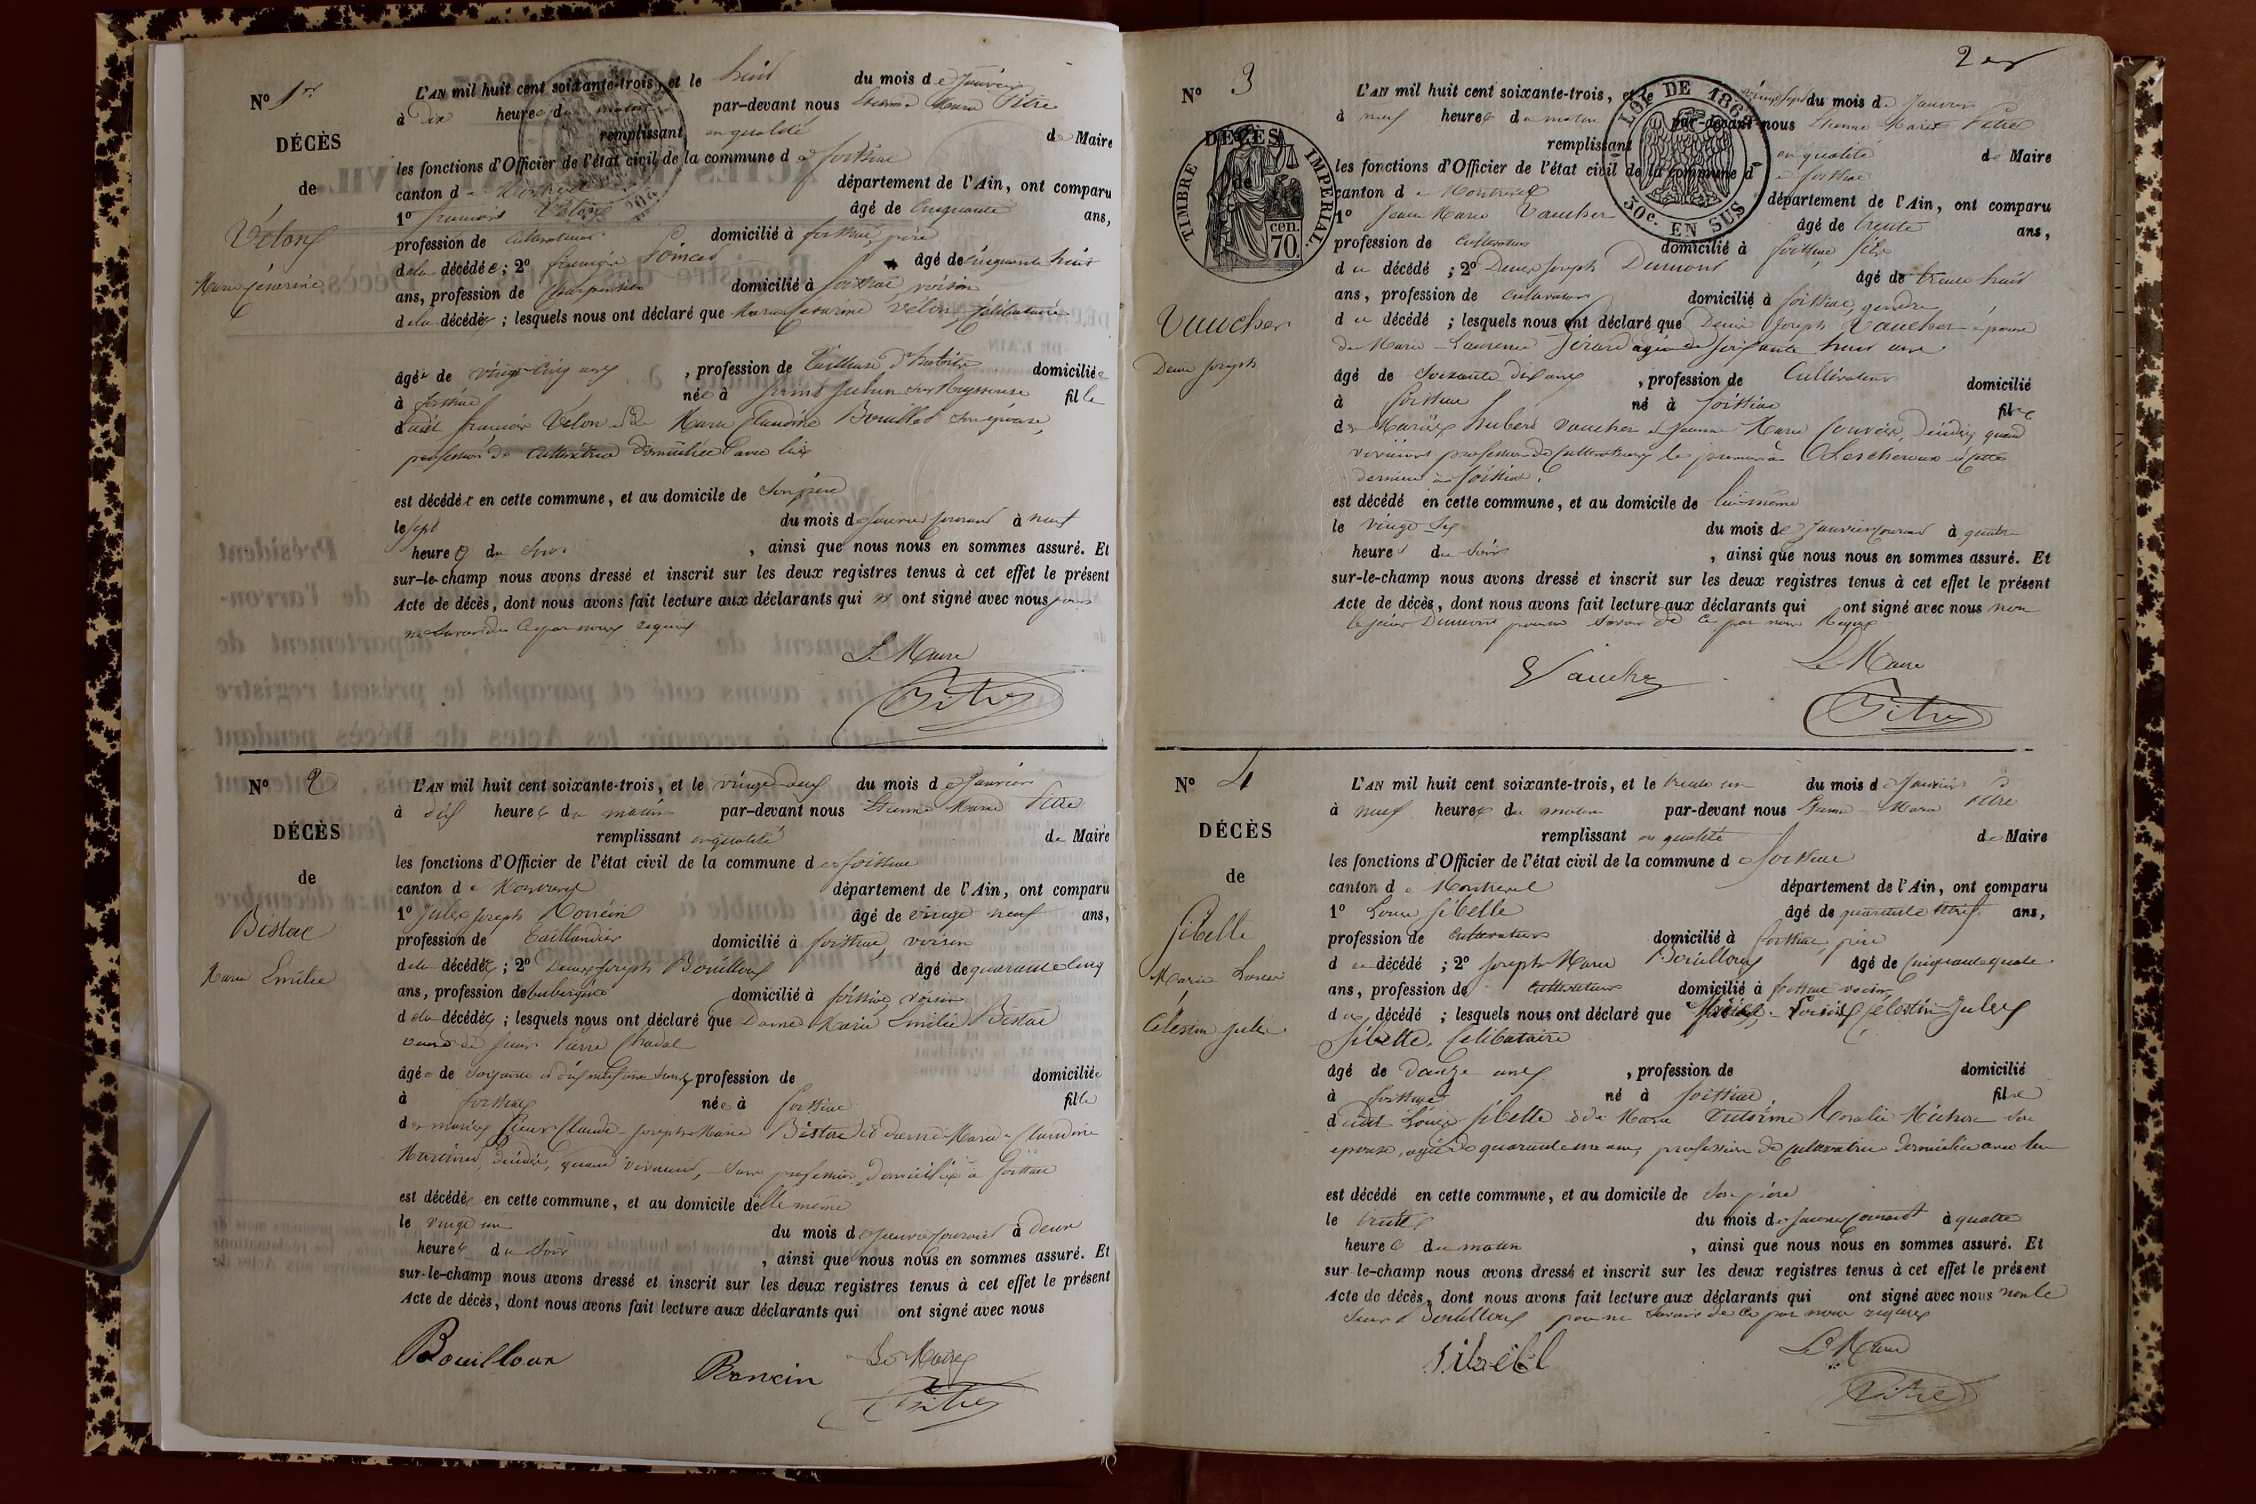 N° 1er
DÉCÈS
de
Vélon
Marie Césarine
L'AN mil huit cent soixante-trois, et le huit du mois de Janvier
à dix heures du matin par-devant nous Etienne Marie Pitre
remplissant en qualité de Maire
les fonctions d'Officier de l'état civil de la commune de foissiat
canton de Montrevel département de l'Ain, ont comparu
1° françois Vélon âgé de Cinquante ans,
profession de Cultivateur domicilié à foissiat, père
de la décédée ; 2° françois Poncet âgé de cinquante huit
ans, profession de Charpentier domicilié à foissiat voisin
de la décédée ; lesquels nous ont déclaré que Marie Césarine Vélon, Célibataire
âgée de vingt cinq ans , profession de Tailleuse d'habits domiciliée
à foissiat née à Saint Julien sur Reyssouze fille
dudit françois Vélon et de Marie Claudine Bouillod son épouse,
profession de Cultivatrice domiciliée avec lui
est décédée en cette commune, et au domicile de Son père
le sept du mois de Janvier Courant à neuf
heures du Soir , ainsi que nous nous en sommes assuré. Et
sur-le-champ nous avons dressé et inscrit sur les deux registres tenus à cet effet le présent
Acte de décès, dont nous avons fait lecture aux déclarants qui n' ont signé avec nous pour
ne Savoir de Ce par nous requis
Le Maire
Pitre
N° 2
DÉCÈS
de
Bistac
Marie Emilie
L'AN mil huit cent soixante-trois, et le vingt deux du mois de Janvier
à dix heures du matin par-devant nous Etienne Marie Pitre
remplissant en qualité de Maire
les fonctions d'Officier de l'état civil de la commune de foissiat
canton de Montrevel département de l'Ain, ont comparu
1° Jules Joseph âgé de vingt neuf ans,
profession de Taillandier domicilié à foissiat, voisin
de la décédée ; 2° Denis Joseph Bouilloux âgé de quarante cinq
ans, profession de aubergiste domicilié à foissiat, voisin
de la décédée ; lesquels nous ont déclaré que Dame Marie Emilie Bistac
veuve de Jean Pierre Chadal
âgée de Soixante et dix neuf ans , profession de domiciliée
à foissiat née à foissiat fille
des mariés Claude Joseph Marie Bistac et dame Marie Claudine
décédés, quand vivaient, Sans profession domiciliés à foissiat
est décédée en cette commune, et au domicile d'elle même
le vingt un du mois de Janvier Courant à deux
heures du Soir , ainsi que nous nous en sommes assuré. Et
sur-le-champ nous avons dressé et inscrit sur les deux registres tenus à cet effet le présent
Acte de décès, dont nous avons fait lecture aux déclarants qui ont signé avec nous
Bouilloux
Le Maire
Pitre
2
N° 3
DÉCÈS
de
TIMBRE IMPERIAL.
cen. 70.
LOI DE 1862
30c. EN SUS
Vaucher
Denis Joseph
L'AN mil huit cent soixante-trois, et le vingt sept du mois de Janvier
à neuf heures du matin par-devant nous Etienne Marie Pitre
remplissant en qualité de Maire
les fonctions d'Officier de l'état civil de la commune de foissiat
canton de Montrevel département de l'Ain, ont comparu
1° Jean Marie Vaucher âgé de trente ans,
profession de Cultivateur domicilié à foissiat fils
du décédé ; 2° Denis Joseph Dumont âgé de trente huit
ans, profession de Cultivateur domicilié à foissiat, gendre
du décédé ; lesquels nous ont déclaré que Denis Joseph Vaucher époux
de Marie Laurence âgée de Soixante huit ans
âgé de Soixante dix ans , profession de Cultivateur domicilié
à foissiat né à foissiat fils
des Mariés hubert Vaucher et Jeanne Marie décédés, quand
vivaient profession de Cultivateurs le premier à Lescheroux et cette
dernière à foissiat.
est décédé en cette commune, et au domicile de lui-même
le vingt Six du mois de Janvier Courant à quatre
heures du Soir , ainsi que nous nous en sommes assuré. Et
sur-le-champ nous avons dressé et inscrit sur les deux registres tenus à cet effet le présent
Acte de décès, dont nous avons fait lecture aux déclarants qui ont signé avec nous non
le Sieur Dumont pour ne Savoir de Ce par nous Requis
Vaucher
Le Maire
Pitre
N° 4
DÉCÈS
de
Sibelle
Marie Louis
Célestin Jules
L'AN mil huit cent soixante-trois, et le trente un du mois de Janvier
à neuf heures du matin par-devant nous Etienne Marie Pitre
remplissant en qualité de Maire
les fonctions d'Officier de l'état civil de la commune de foissiat
canton de Montrevel département de l'Ain, ont comparu
1° Louis Sibelle âgé de quarante ans,
profession de Cultivateur domicilié à foissiat, père
du décédé ; 2° Joseph Marie Bouilloux âgé de Cinquante quatre
ans, profession de Cultivateur domicilié à foissiat voisin
du décédé ; lesquels nous ont déclaré que Célestin Jules
Sibelle, Célibataire
âgé de Douze ans , profession de domicilié
à foissiat né à foissiat fils
dudit Louis Sibelle et de Marie Rosalie Michon son
épouse, âgée de quarante un ans profession de Cultivatrice domiciliée avec lui
est décédé en cette commune, et au domicile de Son père
le trente du mois de Janvier Courant à quatre
heures du matin , ainsi que nous nous en sommes assuré. Et
sur-le-champ nous avons dressé et inscrit sur les deux registres tenus à cet effet le présent
Acte de décès, dont nous avons fait lecture aux déclarants qui ont signé avec nous non le
Sieur Bouilloux pour ne Savoir de Ce par nous requis
Le Maire
Pitre